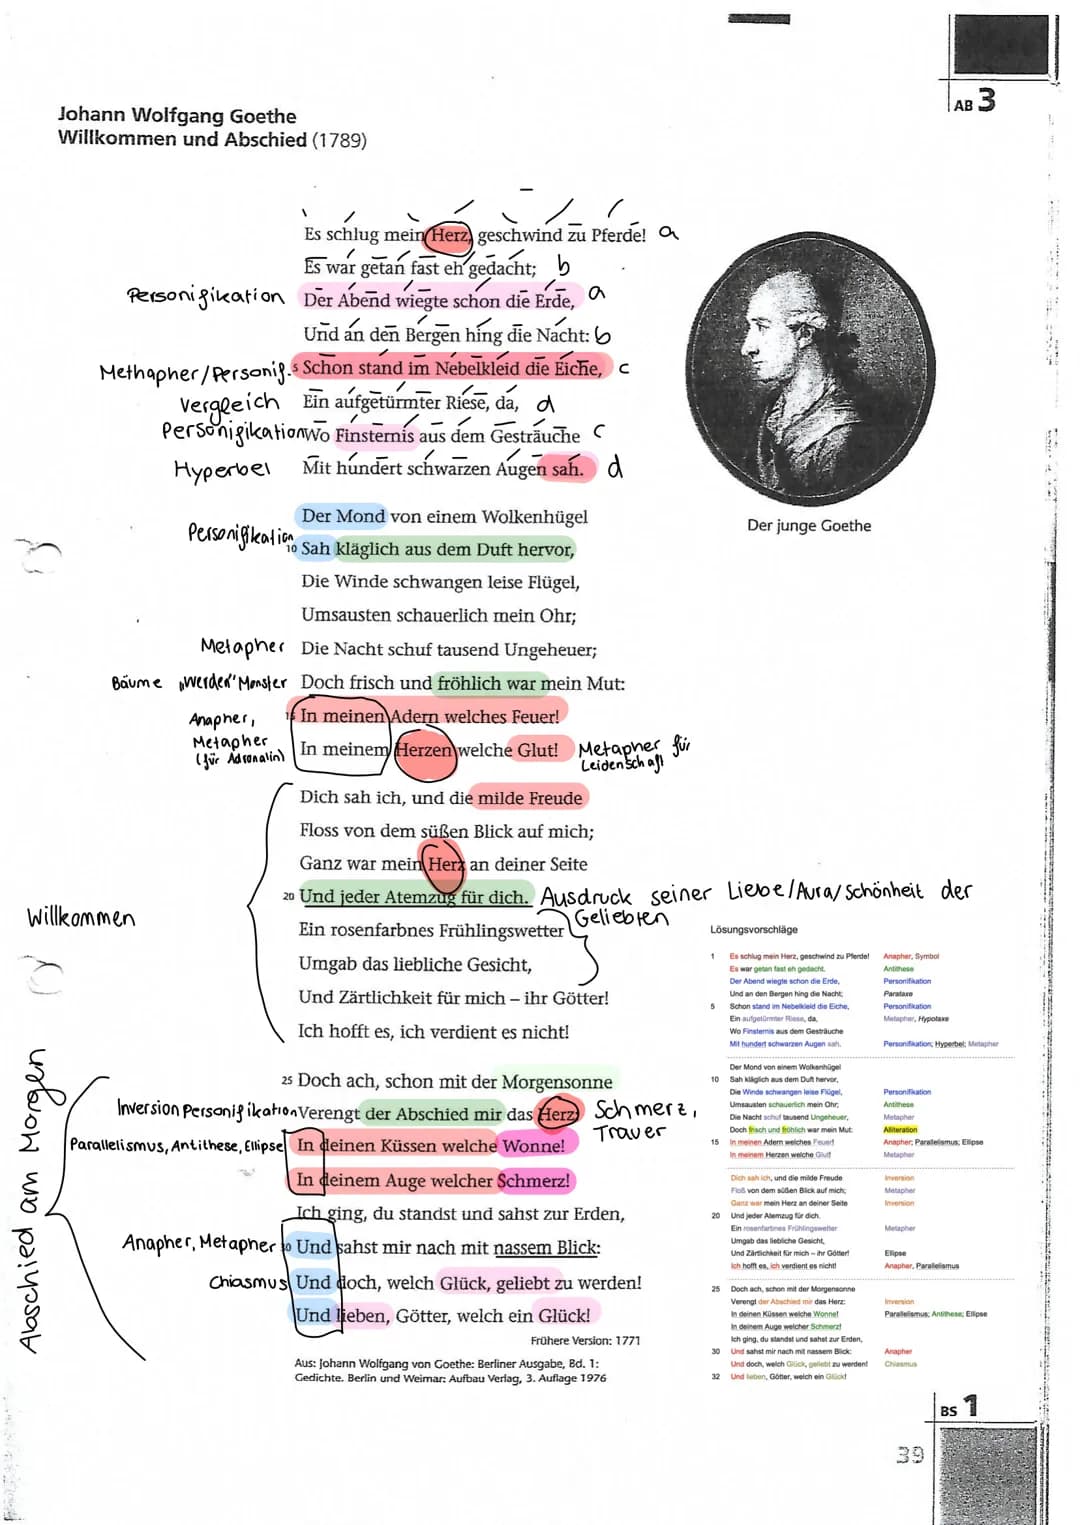 AB 3
Johann Wolfgang Goethe
Willkommen und Abschied (1789)
Es schlug mein Herz, geschwind zu Pferde! a
Es war getan fast eh gedacht; b
Personifikation Der Abend wiegte schon die Erde, a
Und an den Bergen hing die Nacht: b
Methapher/Personif. 5 Schon stand im Nebelkleid die Eiche, c
Vergleich Ein aufgetürmter Riese, da, d
Personifikation Wo Finsternis aus dem Gesträuche c
Hyperbel Mit hundert schwarzen Augen sah. d
Der Mond von einem Wolkenhügel
Personifikation 10 Sah kläglich aus dem Duft hervor,
Die Winde schwangen leise Flügel,
Umsausten schauerlich mein Ohr;
Metapher Die Nacht schuf tausend Ungeheuer;
Bäume „werden" Monster Doch frisch und fröhlich war mein Mut:
Anapher, 15 In meinen Adern welches Feuer!
Metapher In meinem Herzen welche Glut! Metapher für
(für Adronalin) Leidenschaft
Dich sah ich, und die milde Freude
Floss von dem süßen Blick auf mich;
Ganz war mein Herz an deiner Seite
20 Und jeder Atemzug für dich. Ausdruck seiner Liebe/Aura/Schönheit der
Geliebten
Willkommen
Ein rosenfarbnes Frühlingswetter
Umgab das liebliche Gesicht,
Und Zärtlichkeit für mich – ihr Götter!
Ich hofft es, ich verdient es nicht!
Abschied am Morgen
25 Doch ach, schon mit der Morgensonne
Inversion Personifikation Verengt der Abschied mir das Herz: Schmerz,
Trauer
Parallelismus, Antithese, Ellipse In deinen Küssen welche Wonne!
In deinem Auge welcher Schmerz!
Ich ging, du standst und sahst zur Erden,
Anapher, Metapher 30 Und sahst mir nach mit nassem Blick:
Chiasmus Und doch, welch Glück, geliebt zu werden!
Und lieben, Götter, welch ein Glück!
Frühere Version: 1771
Aus: Johann Wolfgang von Goethe: Berliner Ausgabe, Bd. 1:
Gedichte. Berlin und Weimar: Aufbau Verlag, 3. Auflage 1976
Der junge Goethe
Lösungsvorschläge
1 Es schlug mein Herz, geschwind zu Pferde! Anapher, Symbol
Es war getan fast eh gedacht. Antithese
Der Abend wiegte schon die Erde, Personifikation
Und an den Bergen hing die Nacht; Parataxe
5 Schon stand im Nebelkleid die Eiche, Personifikation
Ein aufgetürmter Riese, da, Metapher, Hypotaxe
Wo Finsternis aus dem Gesträuche
Mit hundert schwarzen Augen sah. Personifikation; Hyperbel; Metapher
Der Mond von einem Wolkenhügel
10 Sah kläglich aus dem Duft hervor,
Die Winde schwangen leise Flügel, Personifikation
Umsausten schauerlich mein Ohr; Antithese
Die Nacht schuf tausend Ungeheuer, Metapher
Doch frisch und fröhlich war mein Mut: Alliteration
15 In meinen Adern welches Feuer! Anapher; Parallelismus; Ellipse
In meinem Herzen welche Glut! Metapher
Dich sah ich, und die milde Freude Inversion
Floß von dem süßen Blick auf mich; Metapher
Ganz war mein Herz an deiner Seite Inversion
20 Und jeder Atemzug für dich.
Ein rosenfarbnes Frühlingswetter Metapher
Umgab das liebliche Gesicht,
Und Zärtlichkeit für mich – ihr Götter! Ellipse
Ich hofft es, ich verdient es nicht! Anapher, Parallelismus
25 Doch ach, schon mit der Morgensonne
Verengt der Abschied mir das Herz: Inversion
In deinen Küssen welche Wonne! Parallelismus; Antithese; Ellipse
In deinem Auge welcher Schmerz!
Ich ging, du standst und sahst zur Erden,
30 Und sahst mir nach mit nassem Blick: Anapher
Und doch, welch Glück, geliebt zu werden! Chiasmus
32 Und lieben, Götter, welch ein Glück!
BS 1
39